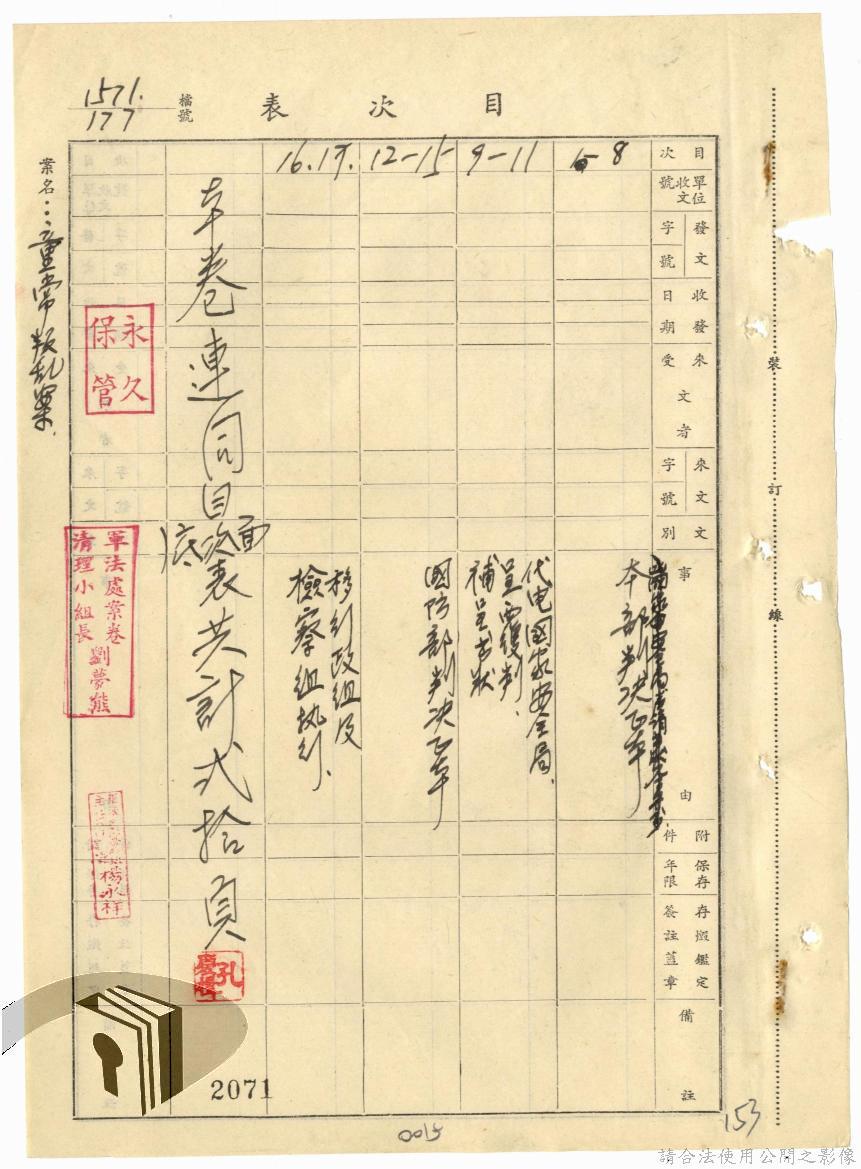 目次表
檔號
1571.
177
案名：童常叛乱案.
目次
單位收文號
發文字號
收發日期
來文受者
來文字號
文別
事由
附件
保存年限
存燬鑑定簽註蓋章
備註
8
本部判決正本
9-11
代电國家安全局.
呈覆判.
補呈書狀
12-15
國防部判決正本
16.17.
移行政組及
檢察組执行.
本卷連同目次表共計弍拾頁
底面
永久保管
軍法處案卷
清理小組長
劉夢熊
楊永祥
孔
裝訂線
2071
0015
153
請合法使用公開之影像